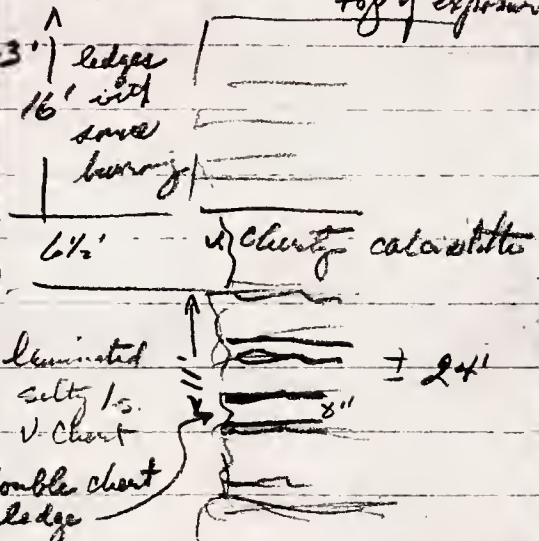 top of exposure
3' ledges
16' with
some
burrowing
6½' v cherty calcisiltite
laminated
silty ls.
v. chert
± 24'
8"
double chert
ledge